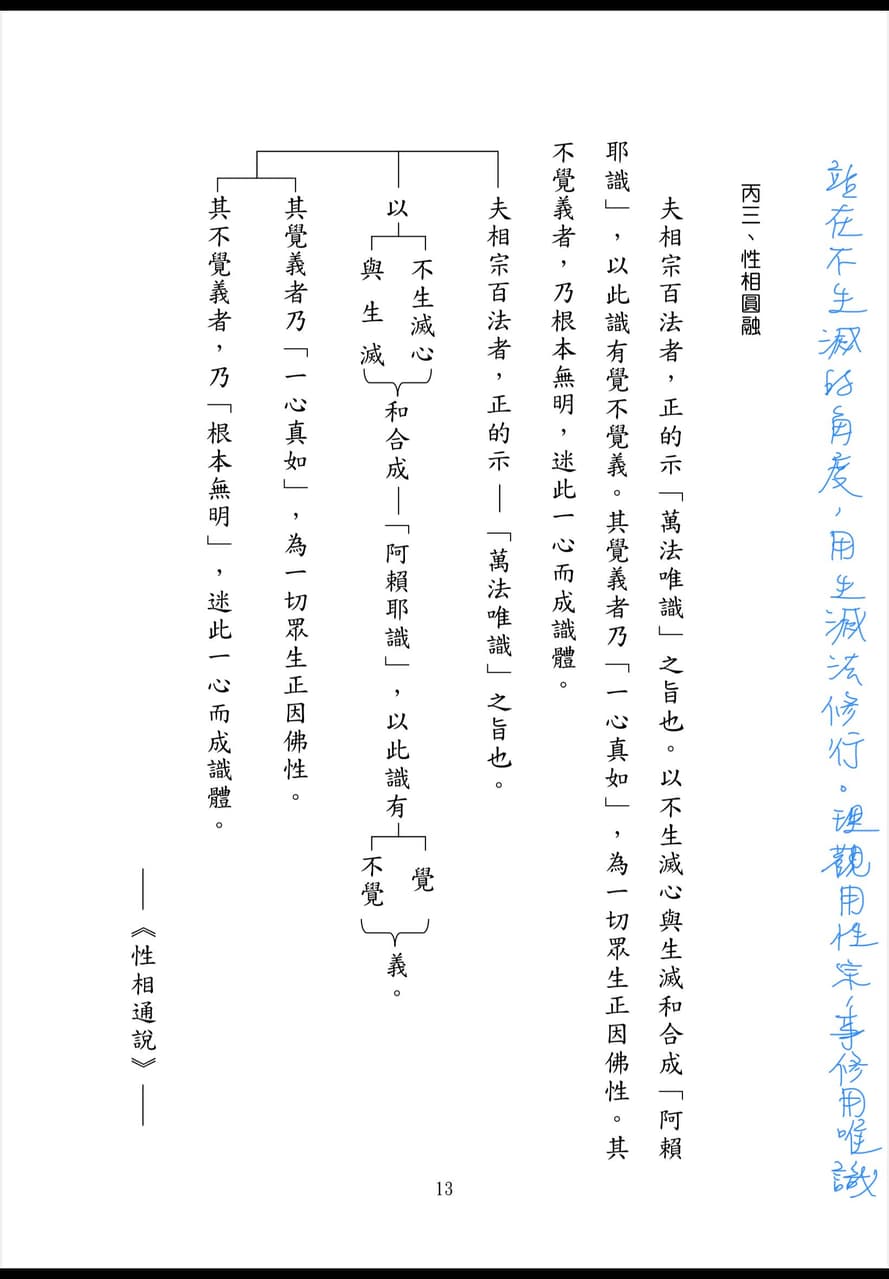 站在不生滅的角度，用生滅法修行。理觀用性宗，事修用唯識
丙三、性相圓融
夫相宗百法者，正的示「萬法唯識」之旨也。以不生滅心與生滅和合成「阿賴
耶識」，以此識有覺不覺義。其覺義者乃「一心真如」，為一切眾生正因佛性。其
不覺義者，乃根本無明，迷此一心而成識體。
夫相宗百法者，正的示—「萬法唯識」之旨也。
以
不生滅心
與生滅
和合成—「阿賴耶識」，以此識有
覺
不覺
義。
其覺義者乃「一心真如」，為一切眾生正因佛性。
其不覺義者，乃「根本無明」，迷此一心而成識體。
——《性相通說》——
13